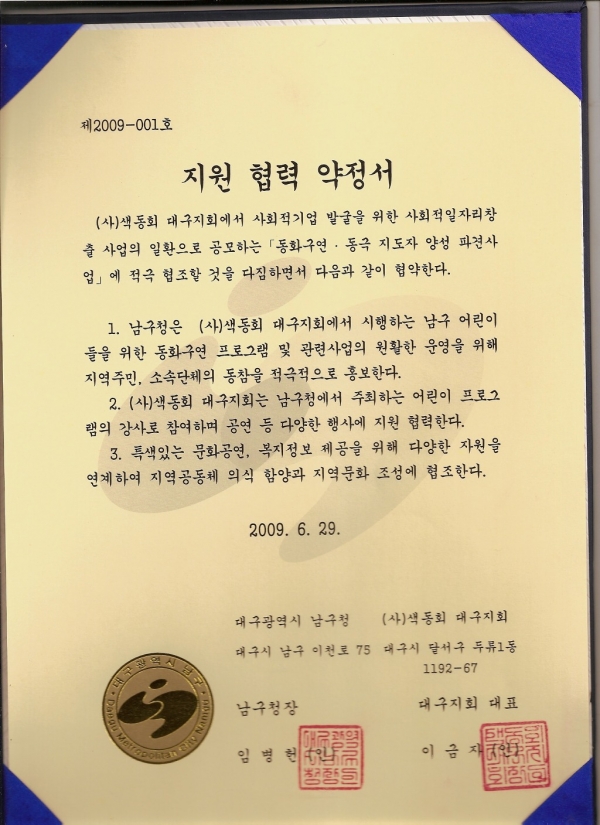 제2009-001호
지원 협력 약정서
(사)색동회 대구지회에서 사회적기업 발굴을 위한 사회적일자리창
출 사업의 일환으로 공모하는「동화구연·동극 지도자 양성 파견사
업」에 적극 협조할 것을 다짐하면서 다음과 같이 협약한다.
1. 남구청은 (사)색동회 대구지회에서 시행하는 남구 어린이
들을 위한 동화구연 프로그램 및 관련사업의 원활한 운영을 위해
지역주민, 소속단체의 동참을 적극적으로 홍보한다.
2. (사)색동회 대구지회는 남구청에서 주최하는 어린이 프로그
램의 강사로 참여하며 공연 등 다양한 행사에 지원 협력한다.
3. 특색있는 문화공연, 복지정보 제공을 위해 다양한 자원을
연계하여 지역공동체 의식 함양과 지역문화 조성에 협조한다.
2009. 6. 29.
대구광역시 남구청 (사)색동회 대구지회
대구시 남구 이천로 75 대구시 달서구 두류1동
1192-67
남구청장 대구지회 대표
임병헌 (인) 이금자 (인)
대구광역시 남구